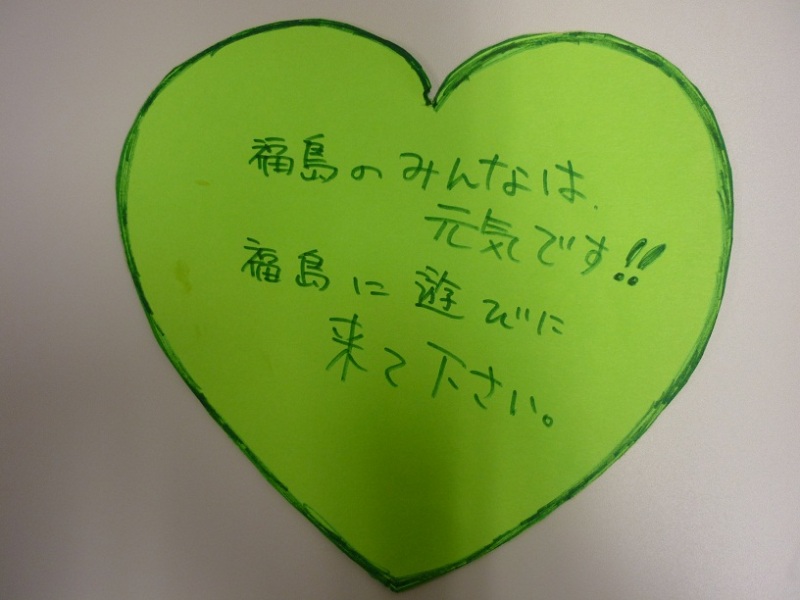 福島のみんなは、
元気です!!
福島に遊びに
来て下さい。